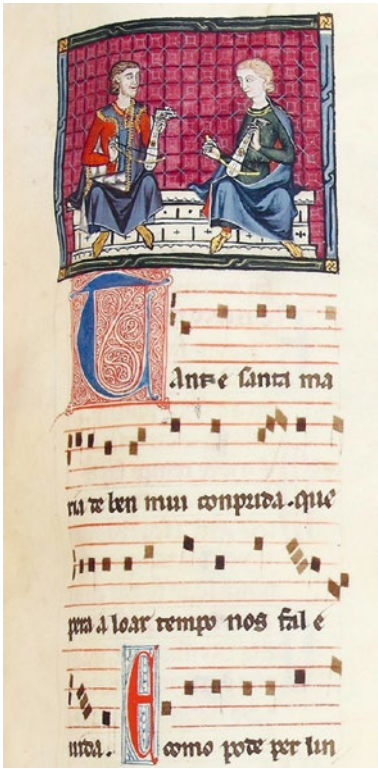 Tant e santa ma
ria de ben mui conprida. que
pera a loar tempo nos fal e
uida. E como pode per lin